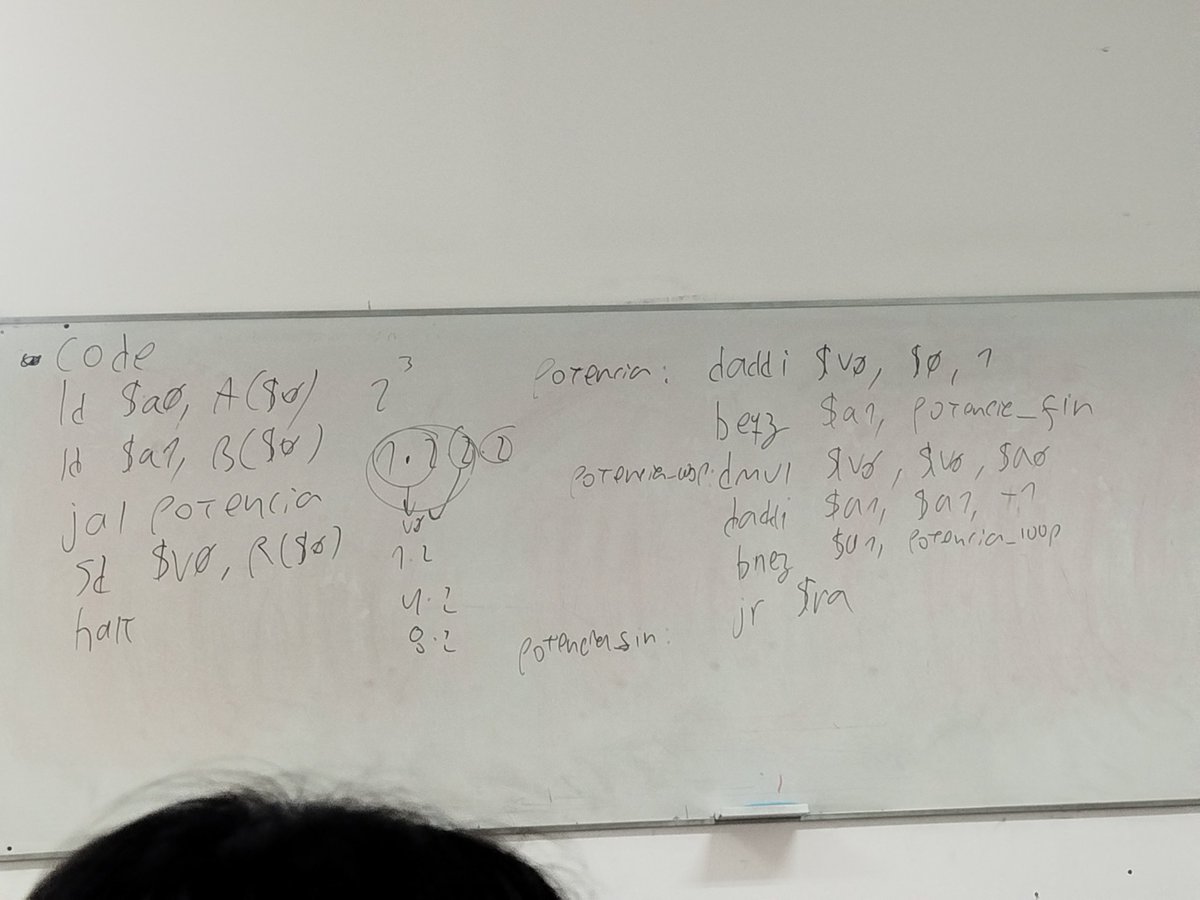 .code
ld $a0, A($0)
ld $a1, B($0)
jal potencia
sd $v0, R($0)
halt
2³
1 . 2 2 2
v0
1.2
4.2
8.2
potencia: daddi $v0, $0, 1
beqz $a1, potencia_fin
potencia_loop: dmul $v0, $v0, $a0
daddi $a1, $a1, -1
bnez $a1, potencia_loop
potencia_fin: jr $ra